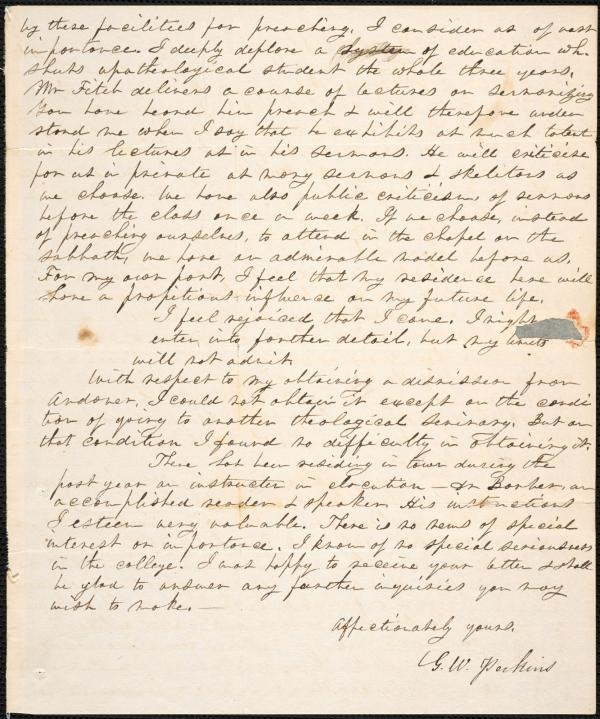 by these facilities for preaching, I consider as of vast
importance. I deeply deplore a system of education wh.
shuts up a theological student the whole three years.
Mr Fitch delivers a course of lectures on sermonizing
You have heard him preach & will therefore under
stand me when I say that he exhibits as much talent
in his lectures as in his sermons. He will criticise
for us in private as many sermons & skelitons as
we choose. We have also public criticism, of sermons
before the class once in week. If we choose, instead
of preaching ourselves, to attend in the chapel on the
sabbath, we have an admirable model before us.
For my own part, I feel that my residence here will
have a propitious influence on my future life.
I feel rejoiced that I came. I might
enter into farther detail, but my limits
will not admit.
With respect to my obtaining a dismission from
Andover, I could not obtain it except on the condi
tion of going to another theological seminary. But on
that condition I found no difficulty in obtaining it.
There has been residing in town during the
past year an instructor in elocution — Barber, an
accomplished reader & speaker. His instructions
I esteem very valuable. There is no news of special
interest or importance. I know of no special seriousness
in the college. I was happy to receive your letter & shall
be glad to answer any further inquiries you may
wish to make. —
Affectionately yours.
G. W. Perkins